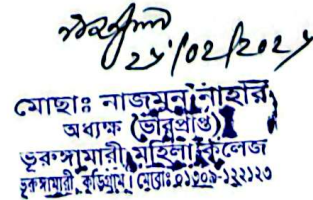 ২৮/০২/২০২৮
মোছাঃ নাজমুন নাহার
অধ্যক্ষ (ভারপ্রাপ্ত)
ভূরুঙ্গামারী মহিলা কলেজ
ভূরুঙ্গামারী, কুড়িগ্রাম। মোবাঃ ০১৩০৯-১২২১২৩